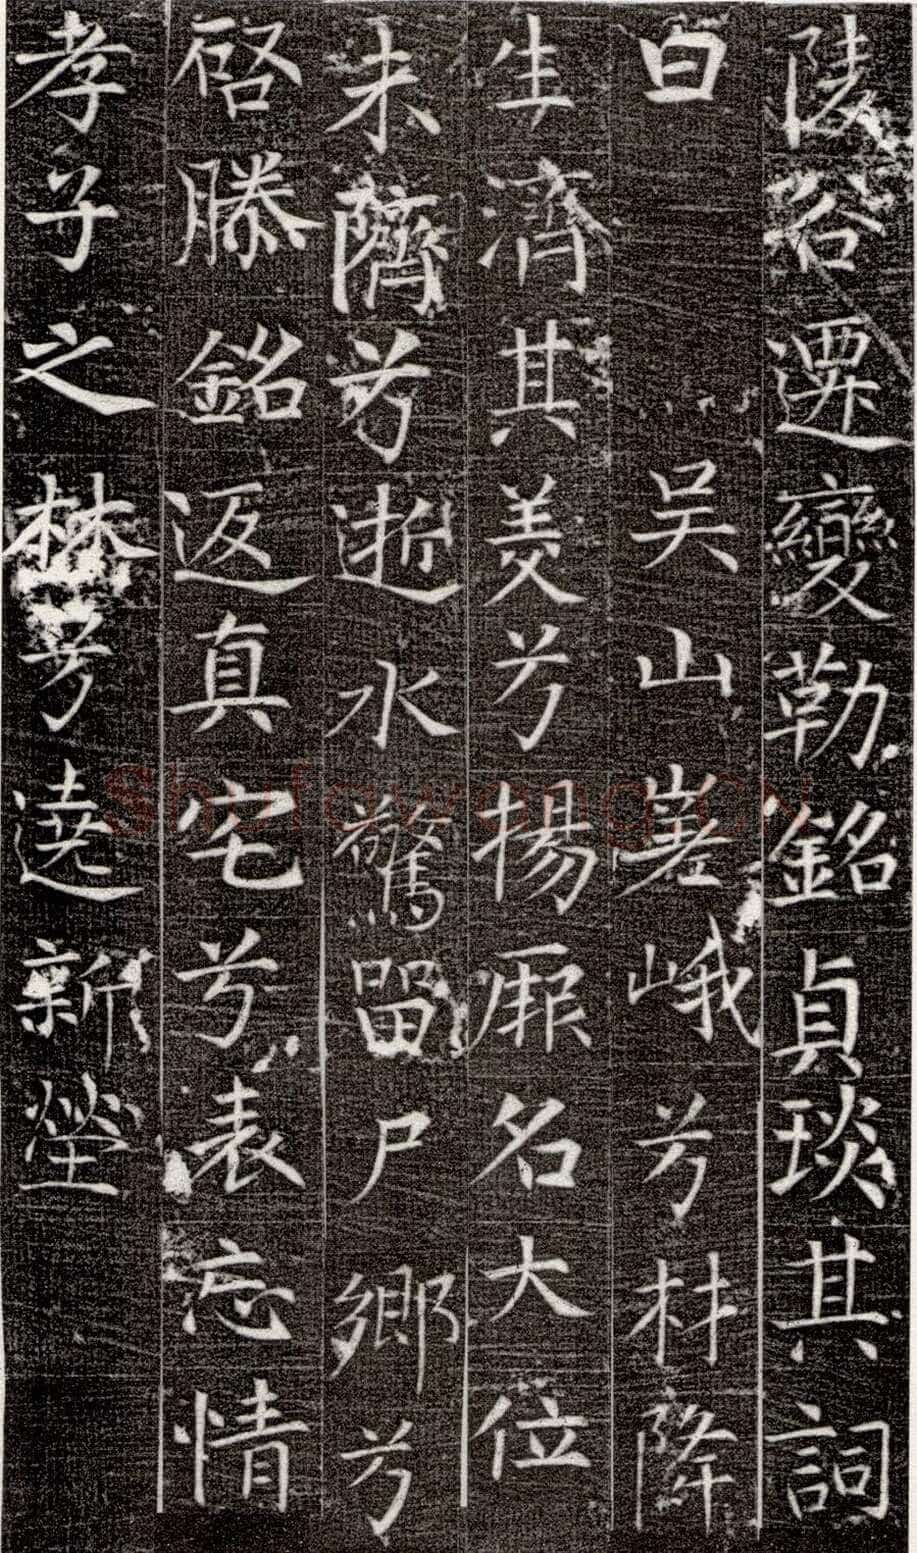 陵谷遷變勒銘貞琰其詞
曰　吴山嵳峨兮材降
生濟其羙兮揚厥名大位
未隮兮逝水驚留尸鄉兮
啓滕銘返真宅兮表忘情
孝子之 兮遶新塋
Shufawang.CN